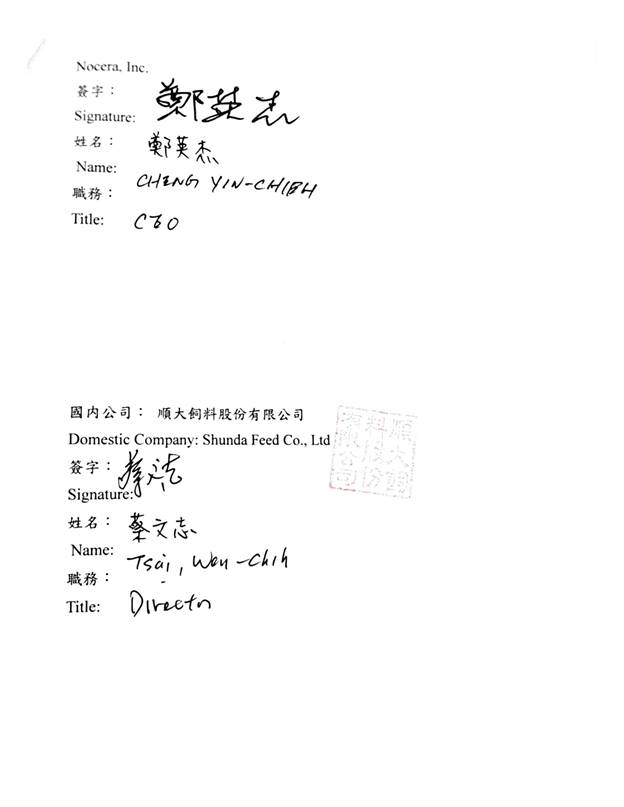 Nocera, Inc.
簽字：
鄭英杰
Signature:
姓名：
鄭英杰
Name:
CHENG YIN-CHIEH
職務：
Title:
CEO
國內公司： 順大飼料股份有限公司
Domestic Company: Shunda Feed Co., Ltd
順大飼
料股份
有限公司
簽字：
蔡文志
Signature:
姓名：
蔡文志
Name:
Tsai, Wen-Chih
職務：
Title:
Director